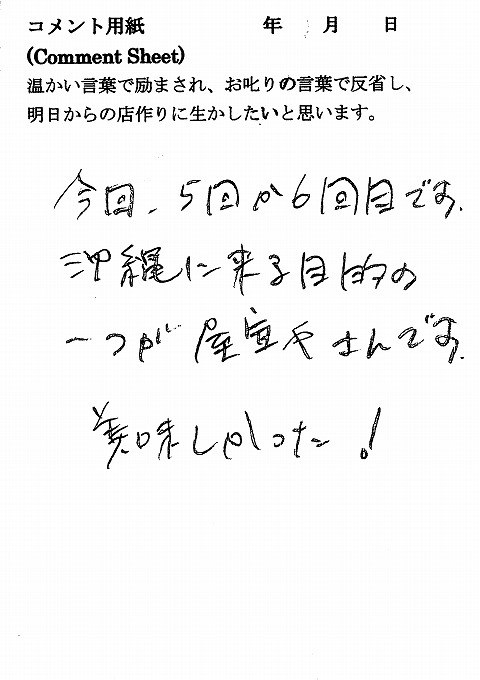 コメント用紙 年 月 日
(Comment Sheet)
温かい言葉で励まされ、お叱りの言葉で反省し、
明日からの店作りに生かしたいと思います。
今回、5回か6回目です。
沖縄に来る目的の
一つが 屋宜やさんです。
美味しかった!